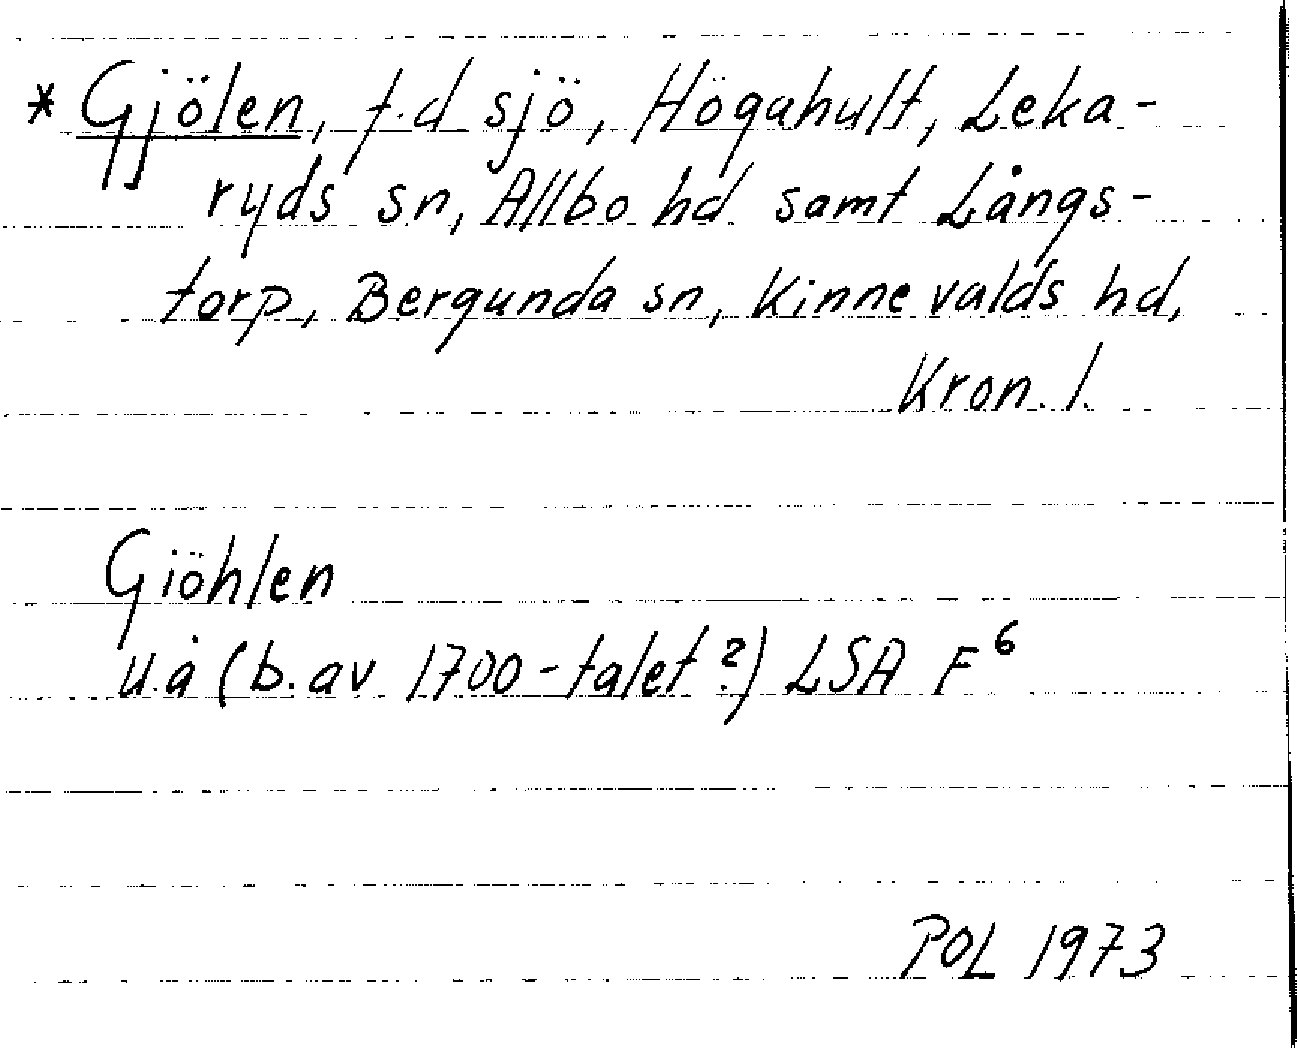 * Gjölen, f.d sjö, Högahult, Leka-
ryds sn, Allbo hd samt Långs-
torp, Bergunda sn, Kinnevalds hd,
Kron. l.
Giöhlen
u.å (b. av 1700-talet?) LSA F⁶
POL 1973